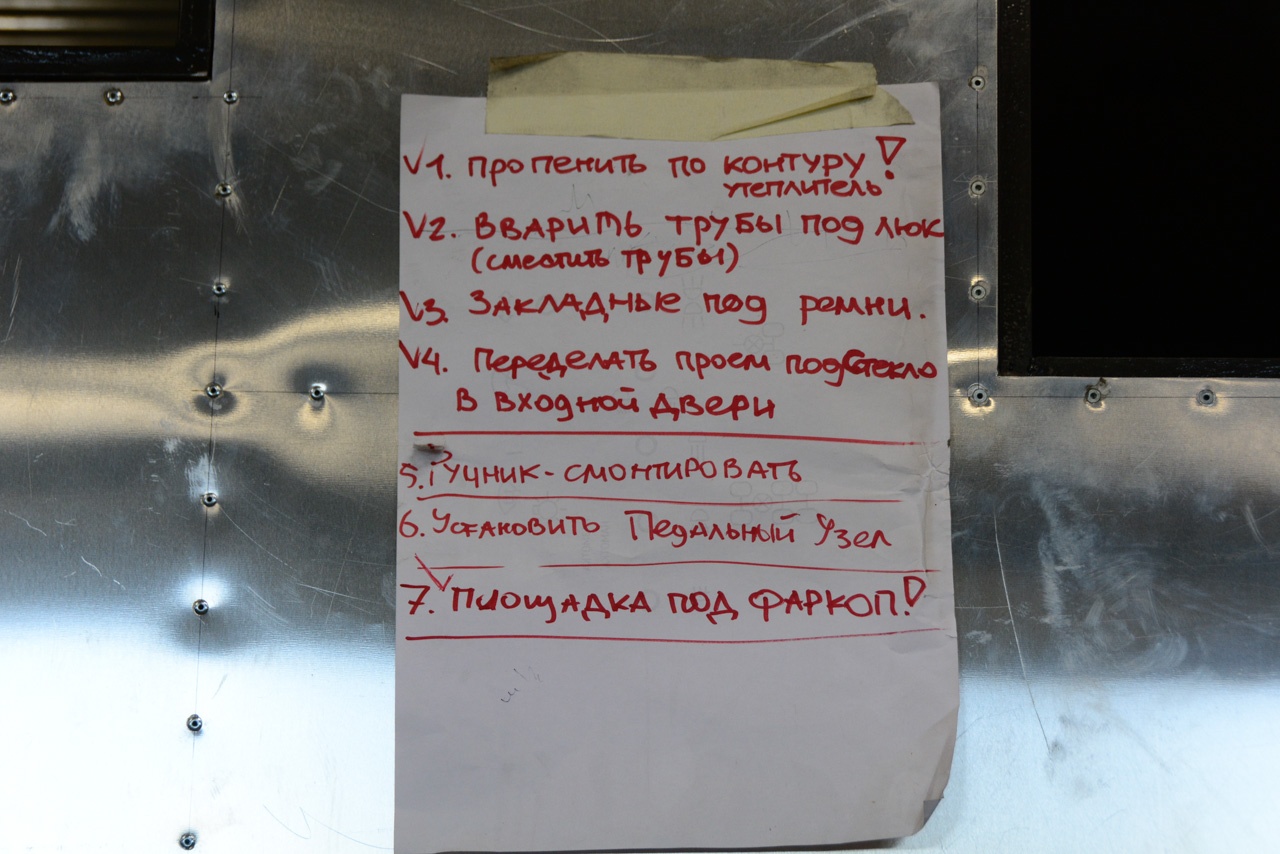 V1. Пропенить по контуру!
утеплитель
V2. Вварить трубы под люк
(сместить трубы)
V3. Закладные под ремни.
V4. Переделать проем под стекло
в входной двери
5. Ручник - смонтировать
6. Устаковить Педальный Узел
V 7. Площадка под фаркоп!